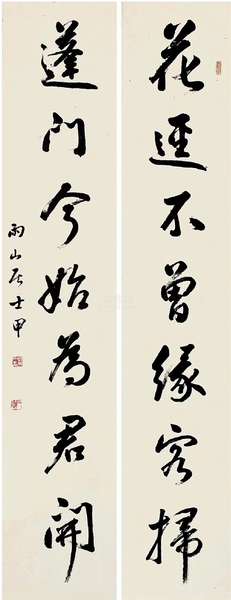 花逕不曾緣客掃
蓬門今始為君開
雨山居士甲